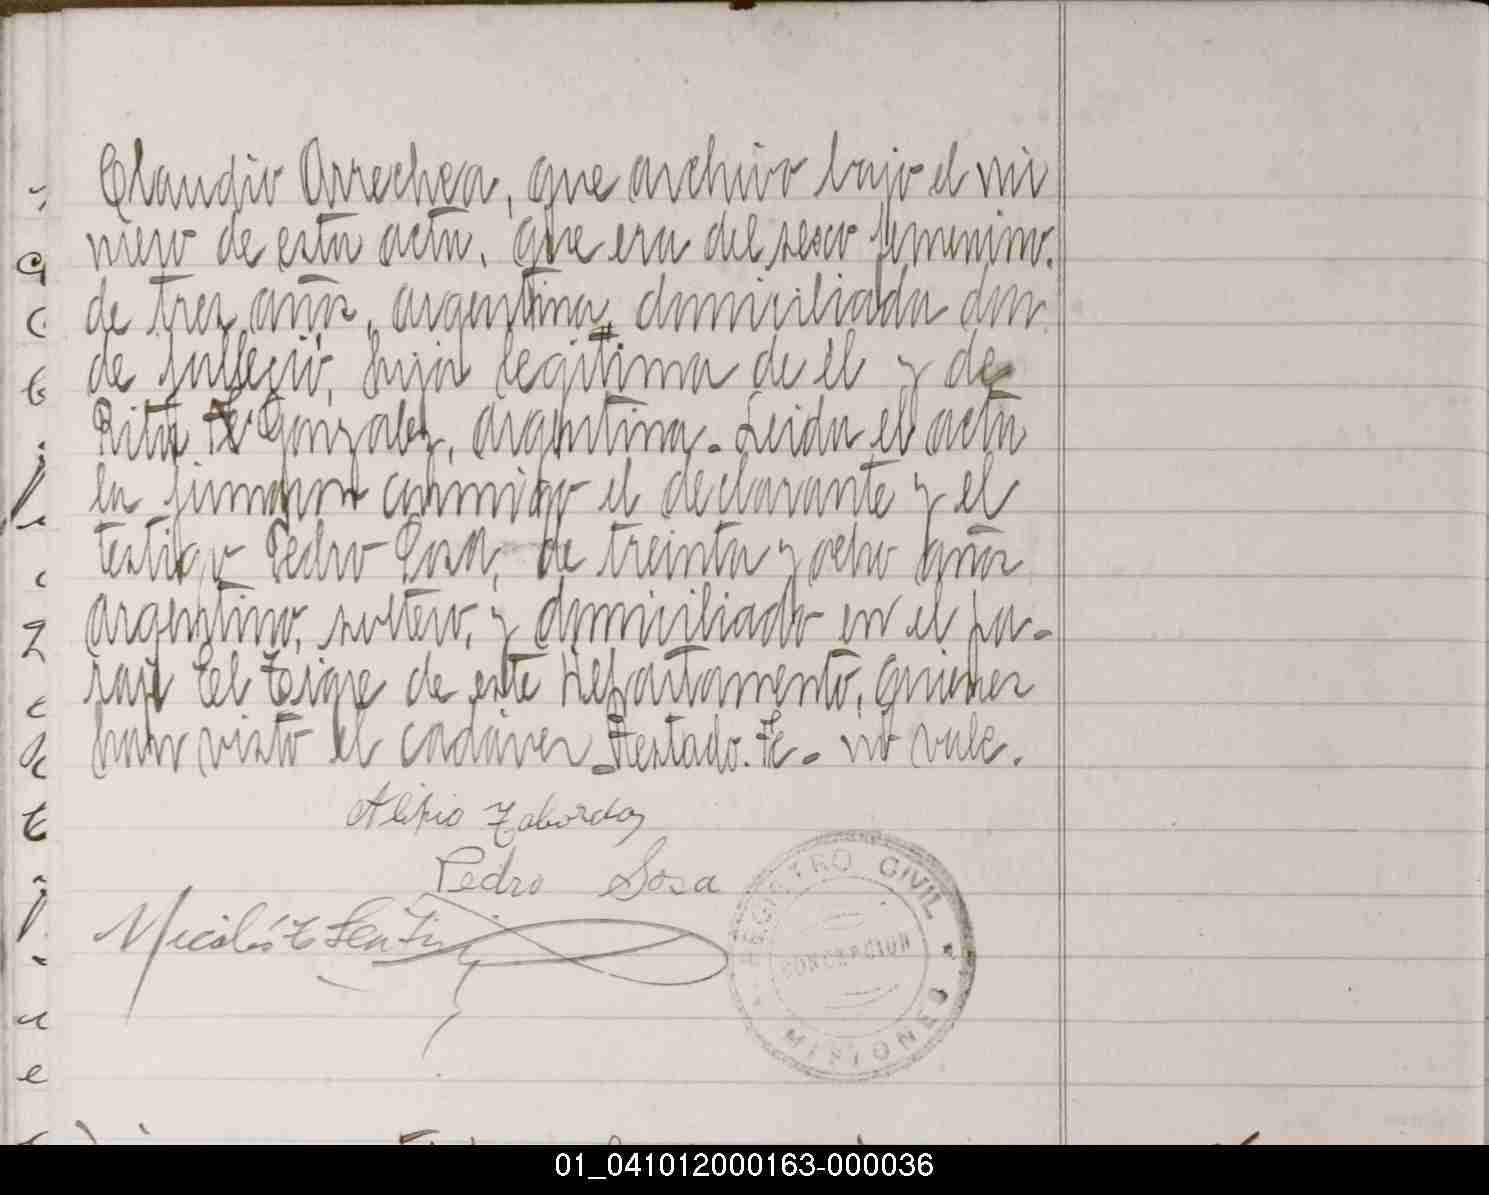 Claudio Arrechea, que archivo bajo el nú
mero de esta acta. Que era del sexo femenino.
de tres años, argentina, domiciliada don
de falleció, hija legítima de el y de
Rita Fe Gonzalez, argentina. Leida el acta
la firmaron conmigo el declarante y el
testigo Pedro Sosa, de treinta y ocho años
argentino, soltero, y domiciliado en el pa-
raje El Tigre de este Departamento, quienes
han visto el cadáver. Testado. Fe. no vale.
Alipio Taborda
Pedro Sosa
Nicolás
REGISTRO CIVIL
CONCEPCION
MISIONES
01_041012000163-000036